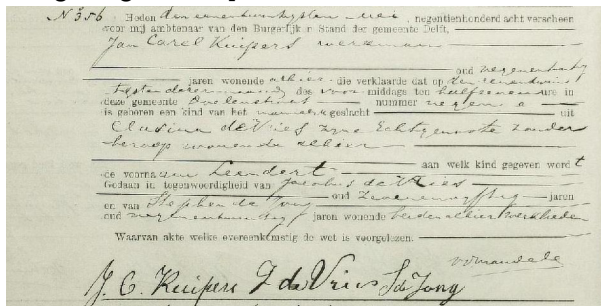 N 356 Heden den eenentwintigsten Mei, negentienhonderd acht verscheen
voor mij ambtenaar van den Burgerlijken Stand der gemeente Delft,
Jan Carel Kuipers werkman
oud negenentwintig
jaren wonende alhier die verklaarde dat op den eenentwin
tigsten dezer maand des voor middags ten half zeven ure in
deze gemeente nummer negen a
is geboren een kind van het mannelijk geslacht uit
Clasina de Vries zyne Echtgenoote zonder
beroep wonende alhier
aan welk kind gegeven wordt
de voornaam Leendert
Gedaan in tegenwoordigheid van Jacobus de Vries
oud zevenenvyftig jaren
en van Stephen de Jong
oud jaren wonende beiden alhier werklieden
Waarvan akte welke overeenkomstig de wet is voorgelezen.
J. C. Kuipers J de Vries S de Jong